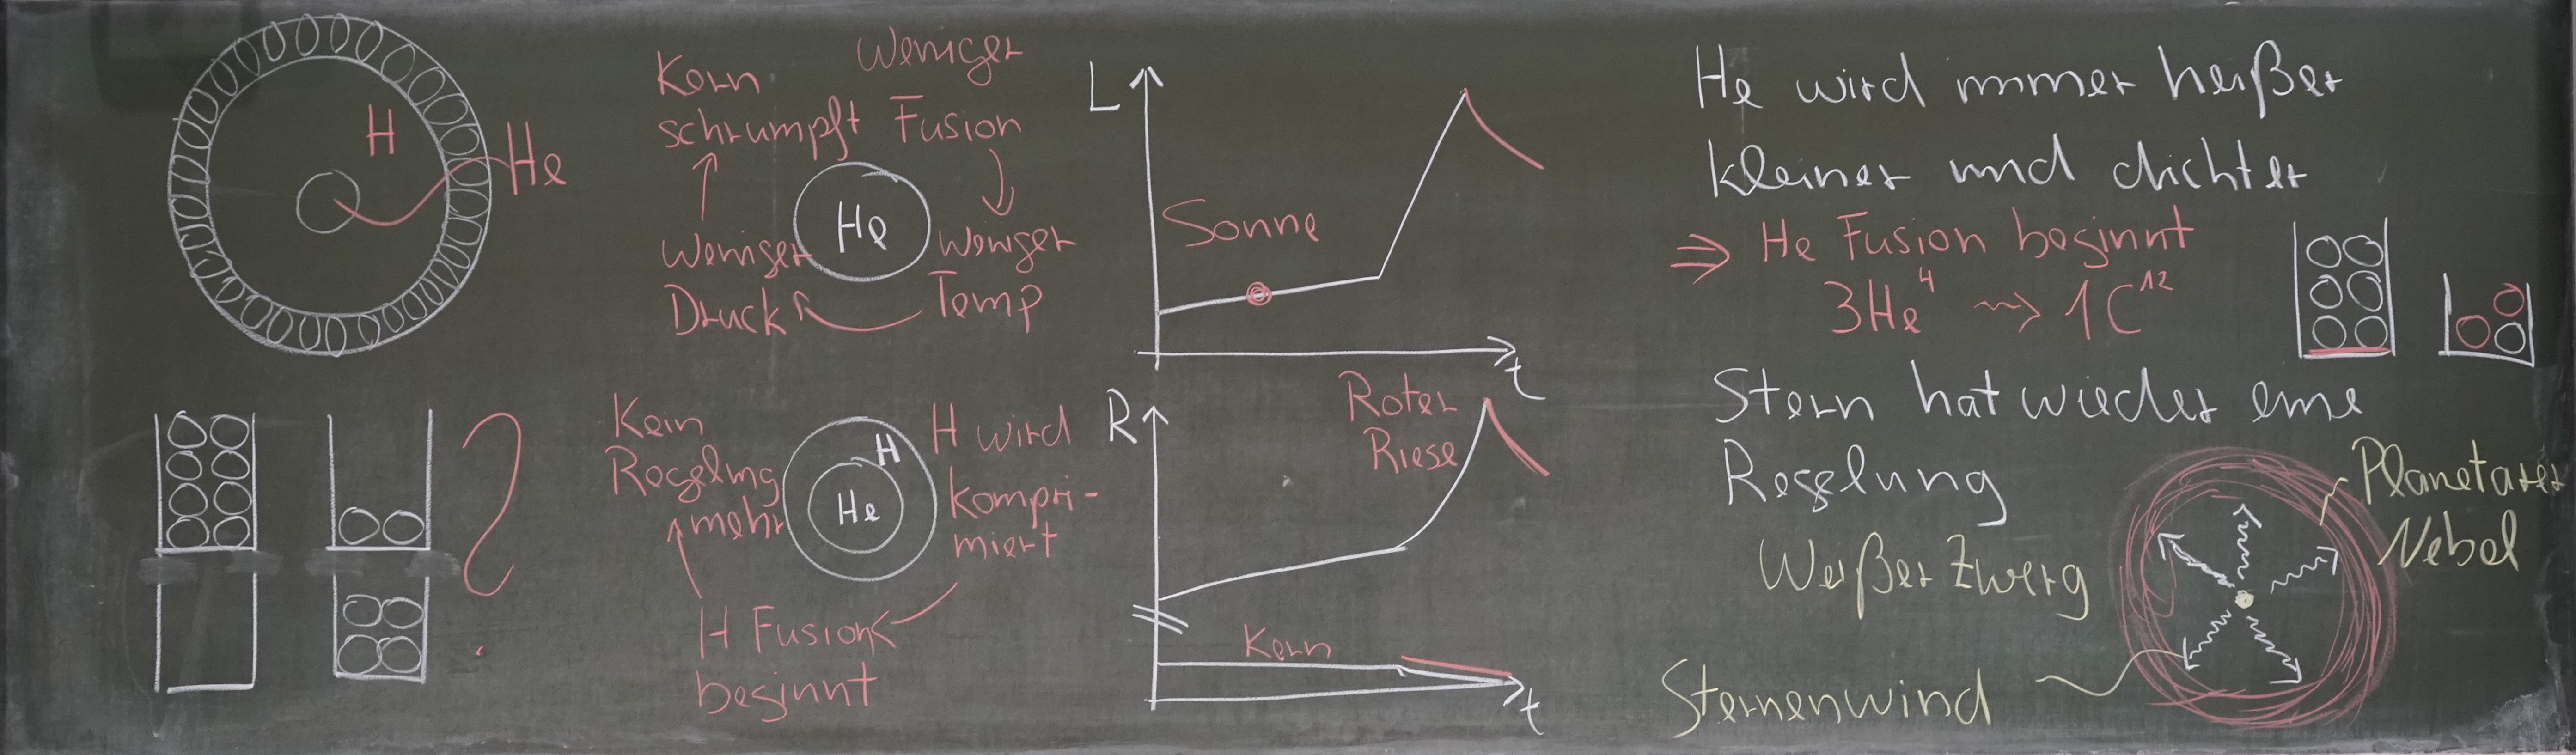 H
He
Kern
schrumpft
Weniger
Fusion
He
Weniger
Temp
Weniger
Druck
Kein
Regelung
mehr
H
He
H wird
kompri-
miert
H Fusion
beginnt
?
L
Sonne
t
R
Roter
Riese
Kern
t
He wird immer heißer
kleiner und dichter
⇒ He Fusion beginnt
3He⁴ ⇝ 1C¹²
Stern hat wieder eine
Regelung
Weißer Zwerg
Planetarer
Nebel
Sternenwind